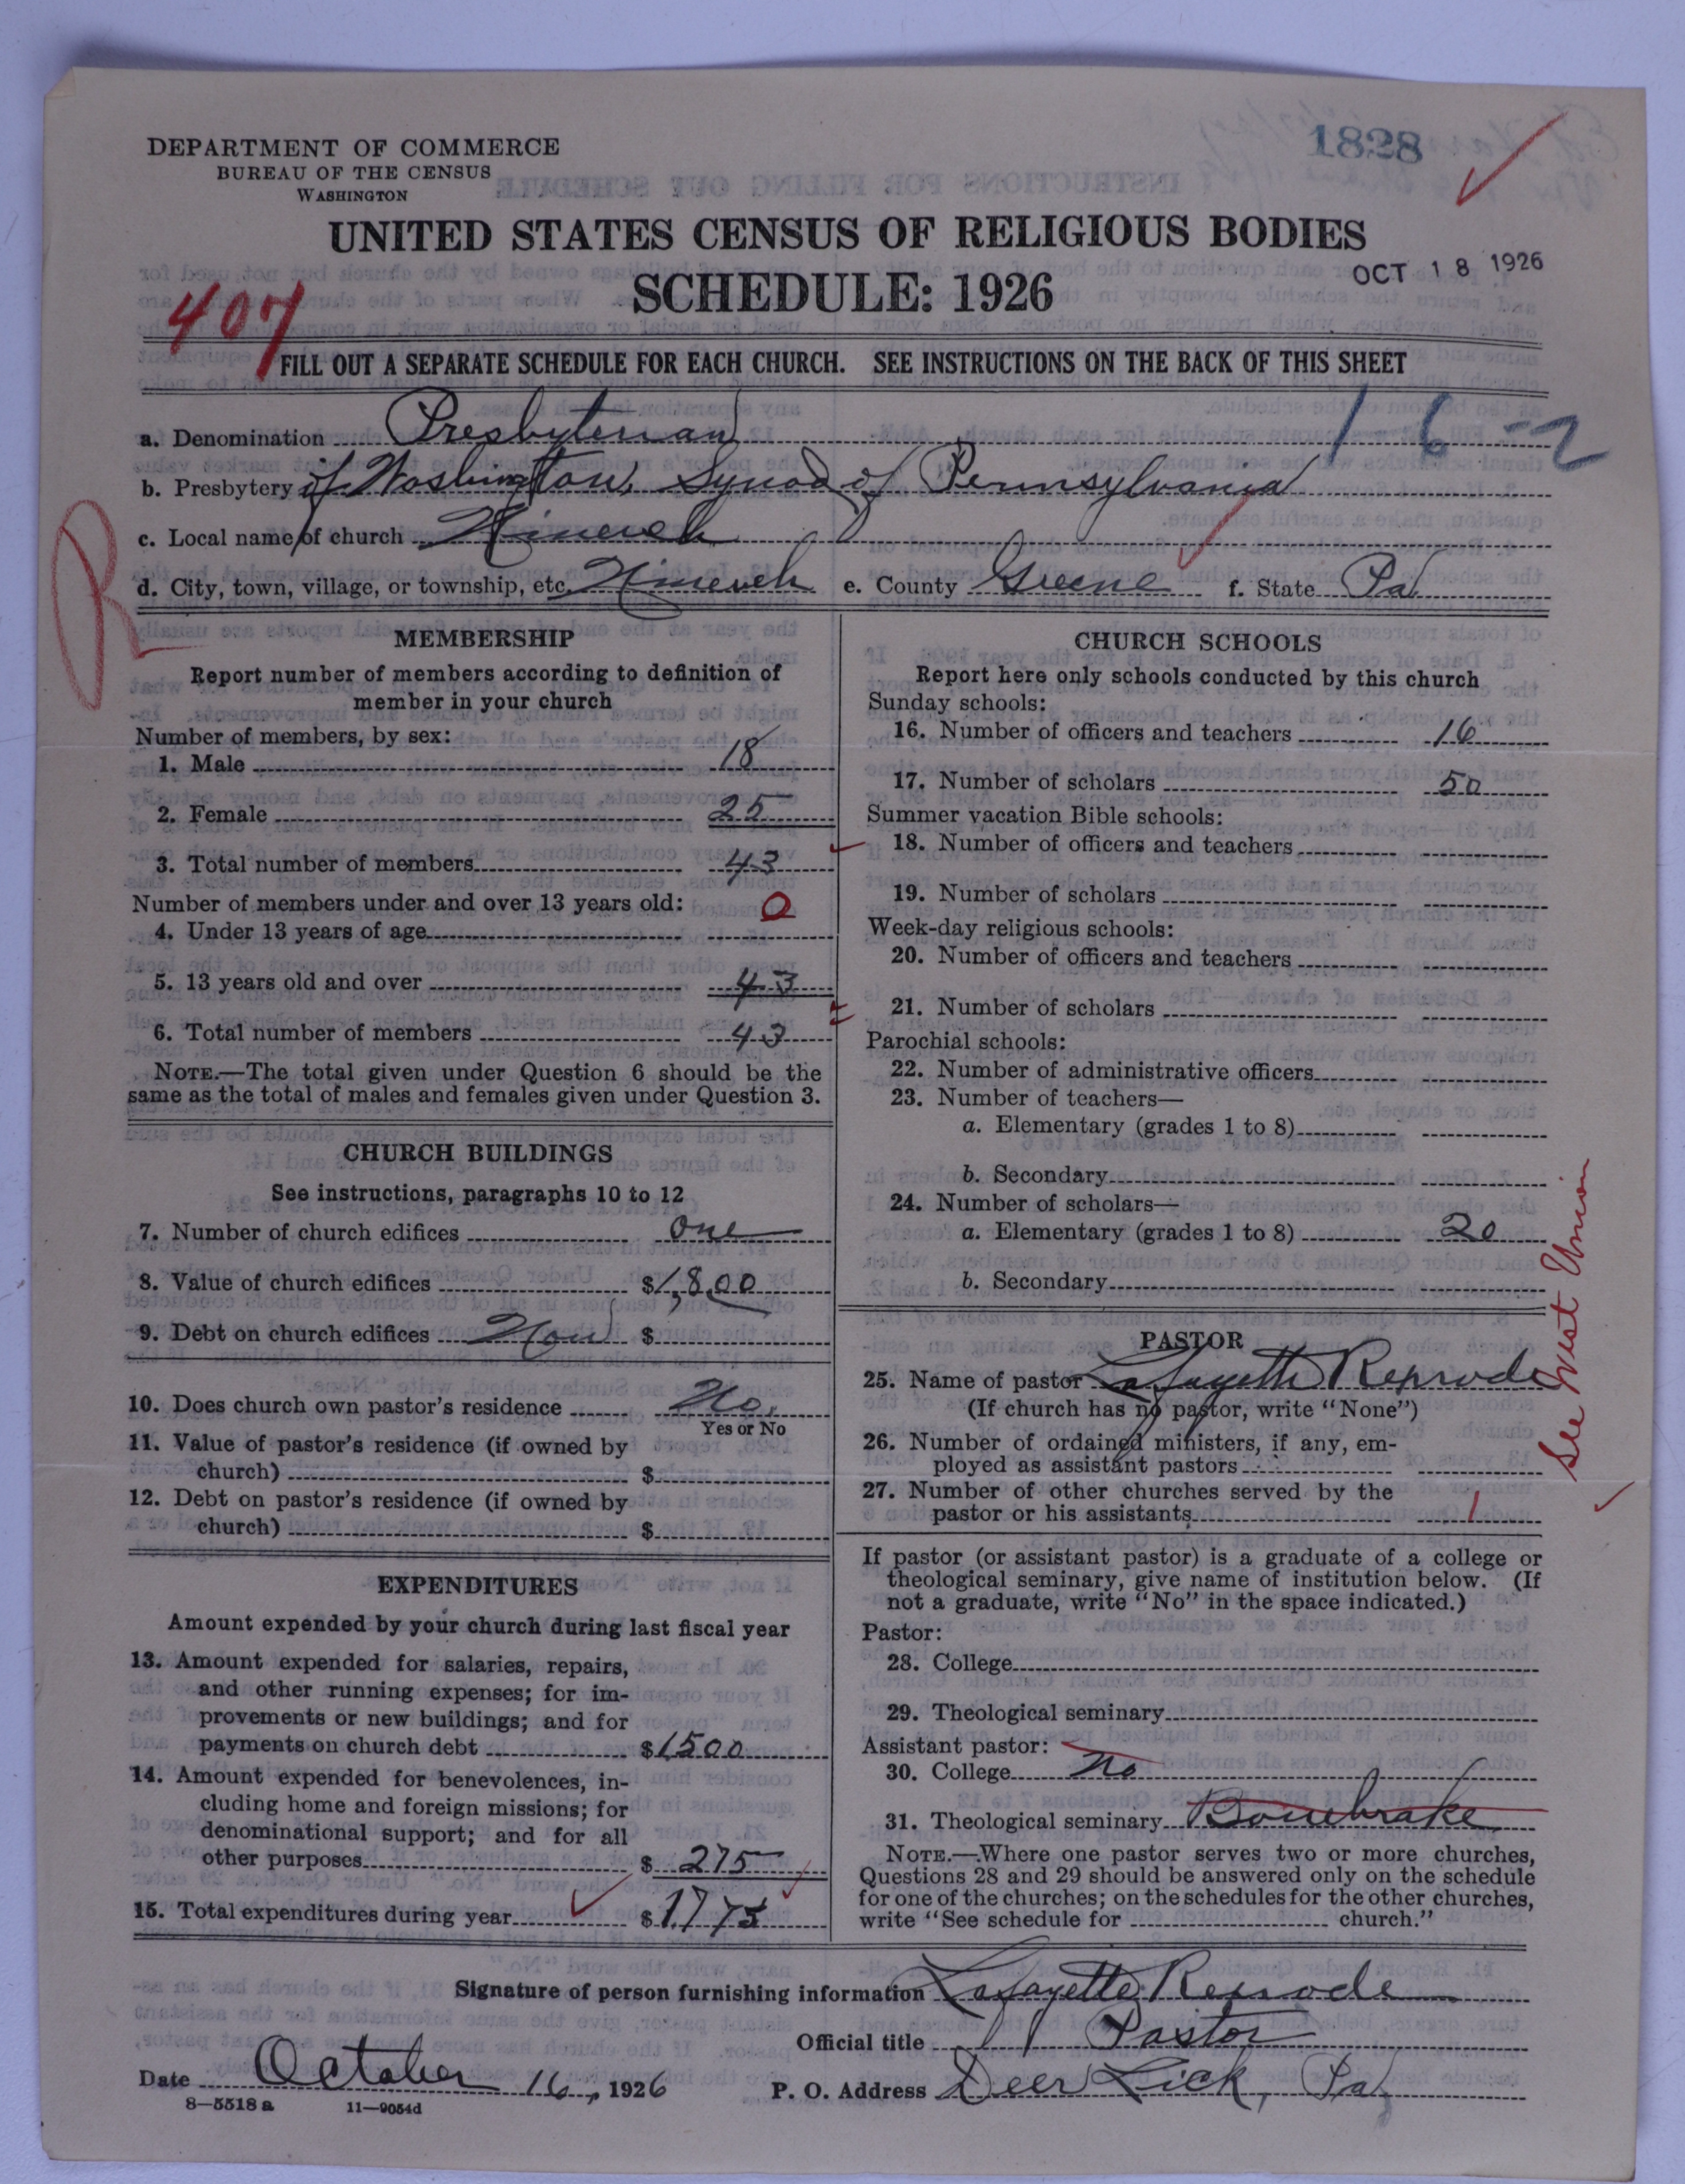 1828
DEPARTMENT OF COMMERCE
BUREAU OF THE CENSUS
WASHINGTON
UNITED STATES CENSUS OF RELIGIOUS BODIES
SCHEDULE: 1926
OCT 18 1926
407
FILL OUT A SEPARATE SCHEDULE FOR EACH CHURCH. SEE INSTRUCTIONS ON THE BACK OF THIS SHEET
16-2
a. Denomination Presbyterian
b. Presbytery of Washington, Synod of Pennsylvania
R
c. Local name of church Nineveh
d. City, town, village, or township, etc. Nineveh e. County Greene f. State Pa
MEMBERSHIP
Report number of members according to definition of
member in your church
Number of members, by sex:
1. Male 18
2. Female 25
3. Total number of members 43
Number of members under and over 13 years old:
4. Under 13 years of age 0
5. 13 years old and over 43
6. Total number of members 43
NOTE.—The total given under Question 6 should be the
same as the total of males and females given under Question 3.
CHURCH BUILDINGS
See instructions, paragraphs 10 to 12
7. Number of church edifices one
8. Value of church edifices $1,800
9. Debt on church edifices $
10. Does church own pastor's residence No.
Yes or No
11. Value of pastor's residence (if owned by
church) $
12. Debt on pastor's residence (if owned by
church) $
EXPENDITURES
Amount expended by your church during last fiscal year
13. Amount expended for salaries, repairs,
and other running expenses; for im-
provements or new buildings; and for
payments on church debt $1500
14. Amount expended for benevolences, in-
cluding home and foreign missions; for
denominational support; and for all
other purposes $275
15. Total expenditures during year $1775
CHURCH SCHOOLS
Report here only schools conducted by this church
Sunday schools:
16. Number of officers and teachers 16
17. Number of scholars 50
Summer vacation Bible schools:
18. Number of officers and teachers
19. Number of scholars
Week-day religious schools:
20. Number of officers and teachers
21. Number of scholars
Parochial schools:
22. Number of administrative officers
23. Number of teachers—
a. Elementary (grades 1 to 8)
b. Secondary
24. Number of scholars—
a. Elementary (grades 1 to 8) 20
b. Secondary
PASTOR
25. Name of pastor Lafayette
(If church has no pastor, write "None")
26. Number of ordained ministers, if any, em-
ployed as assistant pastors
27. Number of other churches served by the
pastor or his assistants 1
See West Union
If pastor (or assistant pastor) is a graduate of a college or
theological seminary, give name of institution below. (If
not a graduate, write "No" in the space indicated.)
Pastor:
28. College
29. Theological seminary
Assistant pastor:
30. College No
31. Theological seminary Bonebrake
NOTE.—Where one pastor serves two or more churches,
Questions 28 and 29 should be answered only on the schedule
for one of the churches; on the schedules for the other churches,
write "See schedule for church."
Signature of person furnishing information Lafayette
Official title Pastor
Date October 16, 1926 P. O. Address Deer Lick, Pa
8-5518a 11-9054d